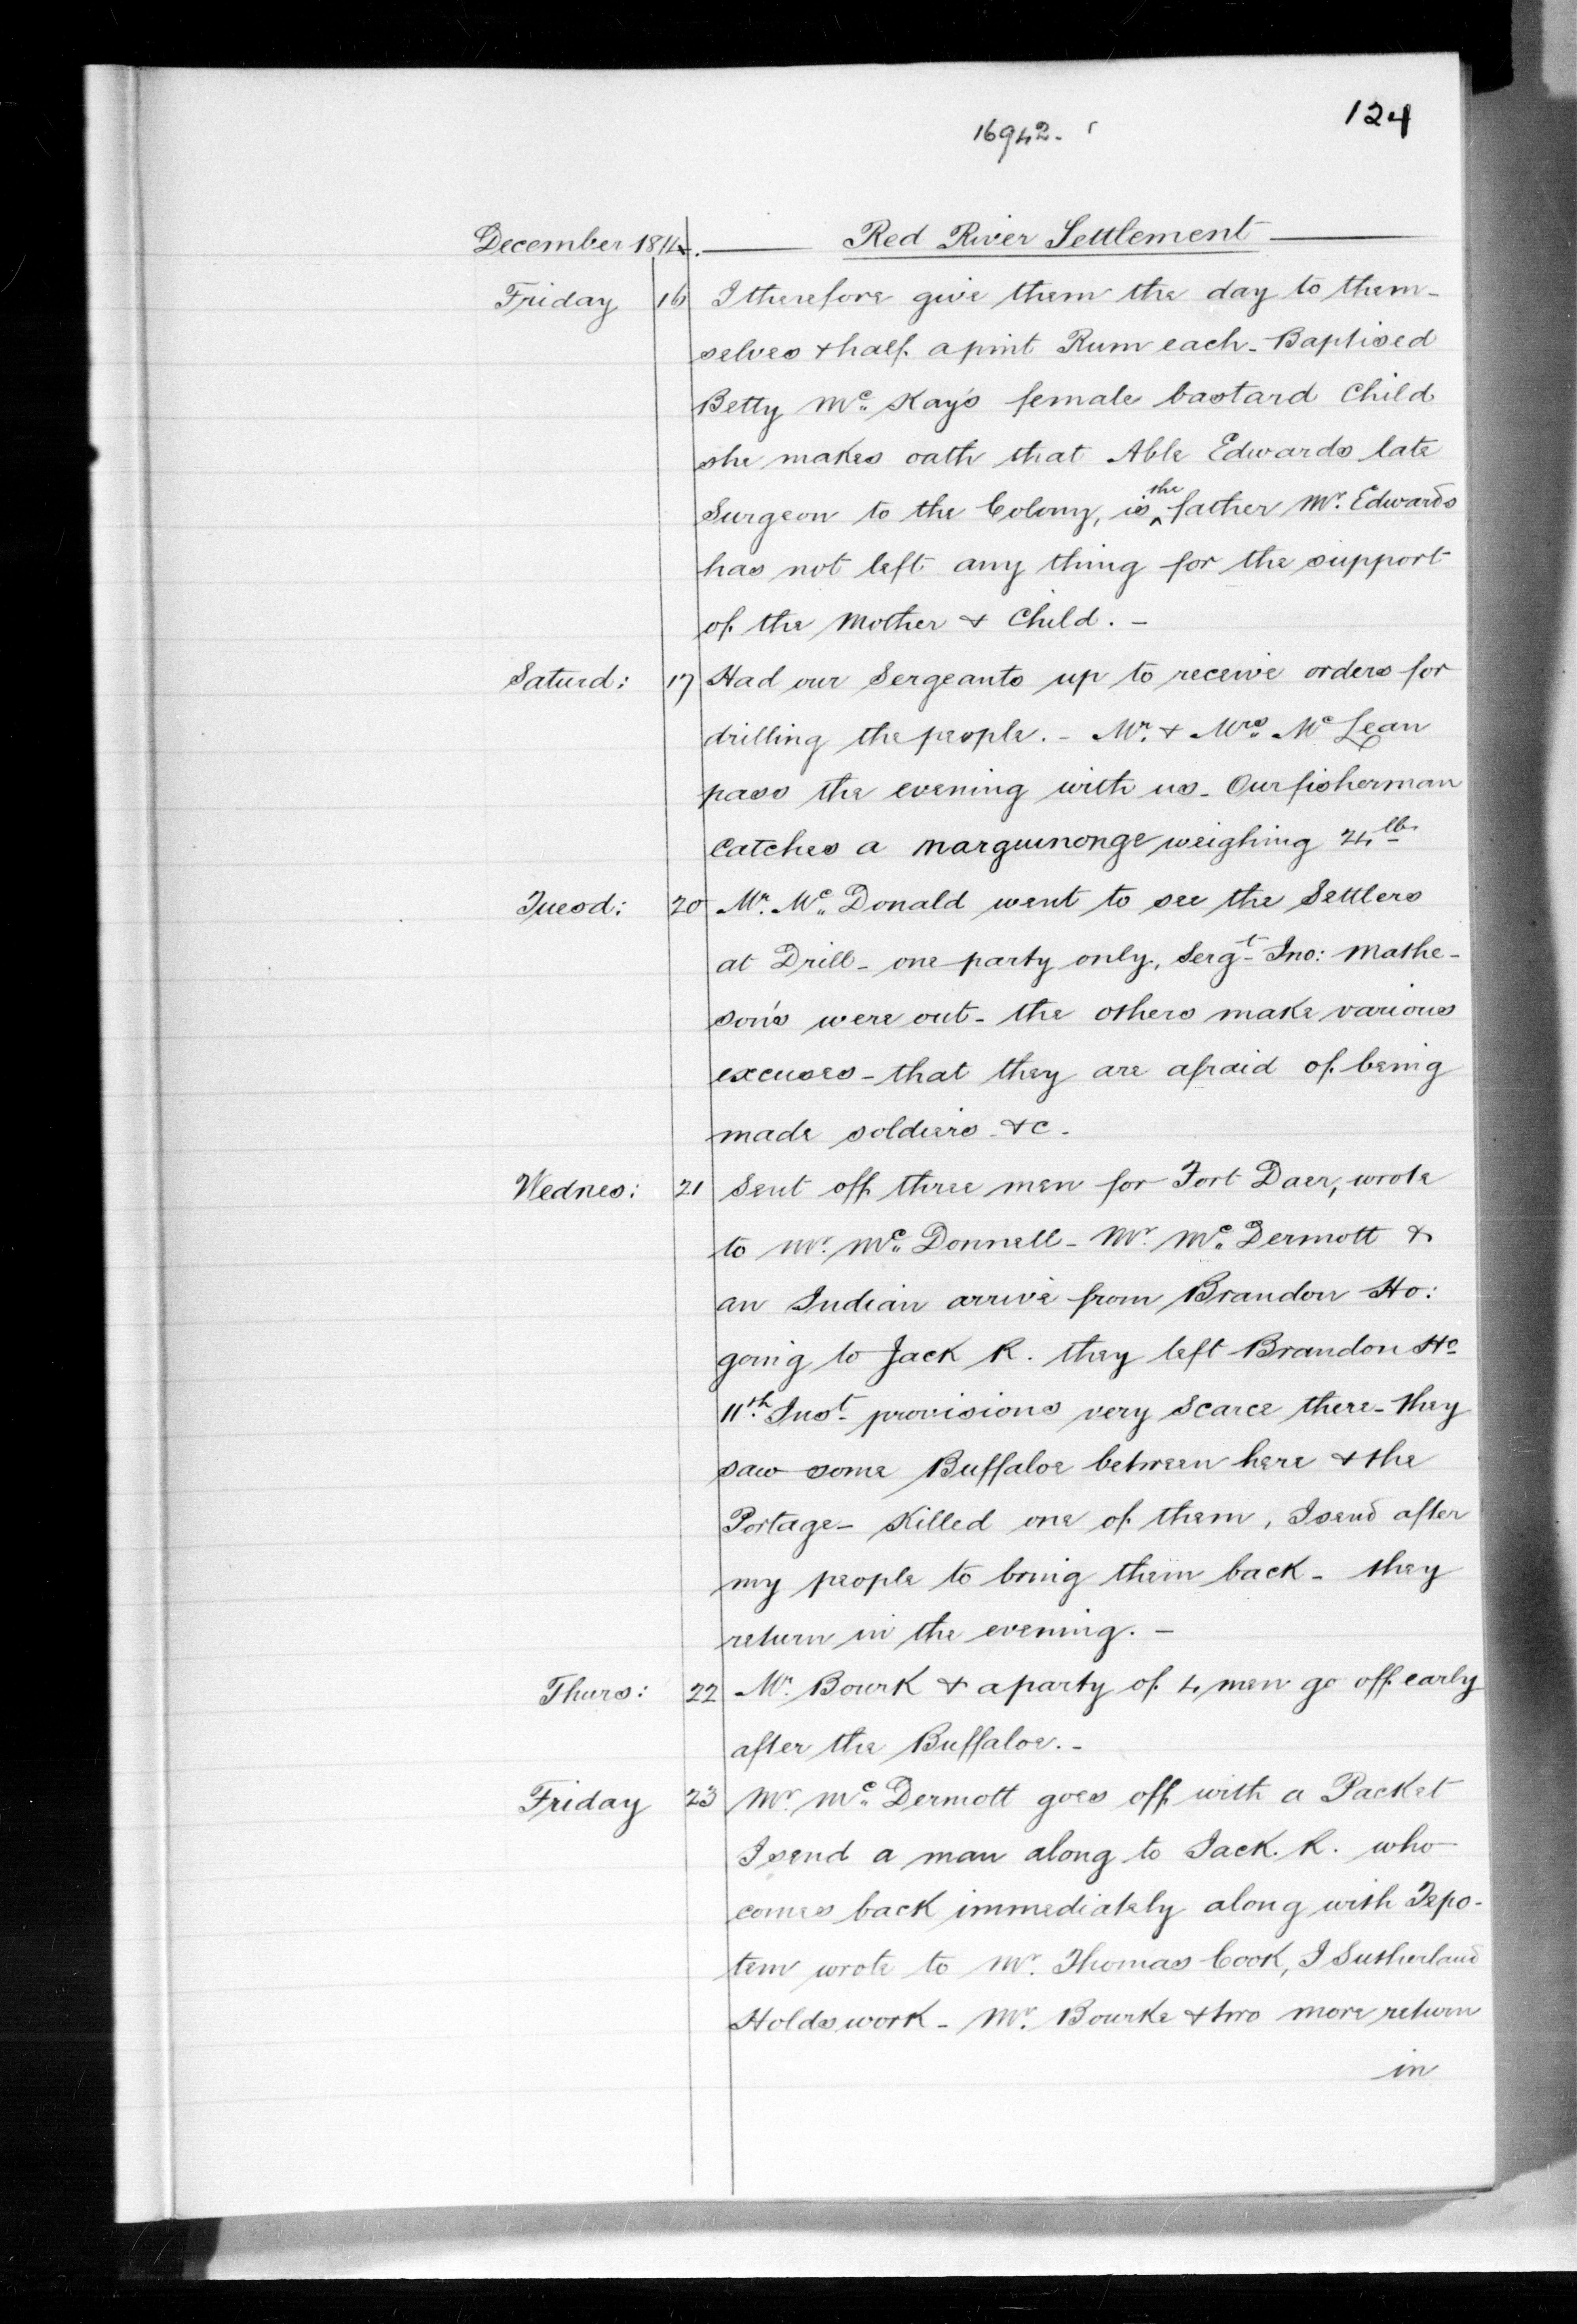 124
16942.
December 1814. Red River Settlement
Friday 16 I therefore give them the day to them-
selves & half a pint Rum each - Baptised
Betty Mc. Kay's female bastard Child
she makes oath that Able Edwards late
Surgeon to the Colony, is ^the father Mr. Edwards
has not left any thing for the support
of the Mother & Child. -
Saturd: 17 Had our Sergeants up to receive orders for
drilling the people. - Mr. & Mrs. Mc Lean
pass the evening with us - Our fisherman
Catches a marguinonge weighing 24 lb
Tuesd: 20 Mr. Mc. Donald went to see the Settlers
at Drill - one party only, Sergt Jno: Mathe-
son's were out - the others make various
excuses - that they are afraid of being
made soldiers - &c -
Wednes: 21 Sent off three men for Fort Daer, wrote
to Mr. Mc. Donnell - Mr. Mc. Dermott &
an Indian arrive from Brandon Ho:
going to Jack R. they left Brandon Ho
11th. Inst. provisions very scarce there - they
saw some Buffaloe between here & the
Portage - Killed one of them, I send after
my people to bring them back - they
return in the evening. -
Thurs: 22 Mr. Bourk & a party of 4 men go off early
after the Buffaloe. -
Friday 23 Mr. Mc. Dermott goes off with a Packet
I send a man along to Jack. R. who
comes back immediately along with Tepo-
tem wrote to Mr. Thomas Cook, J Sutherland
Holdswork - Mr. Bourke & two more return
in